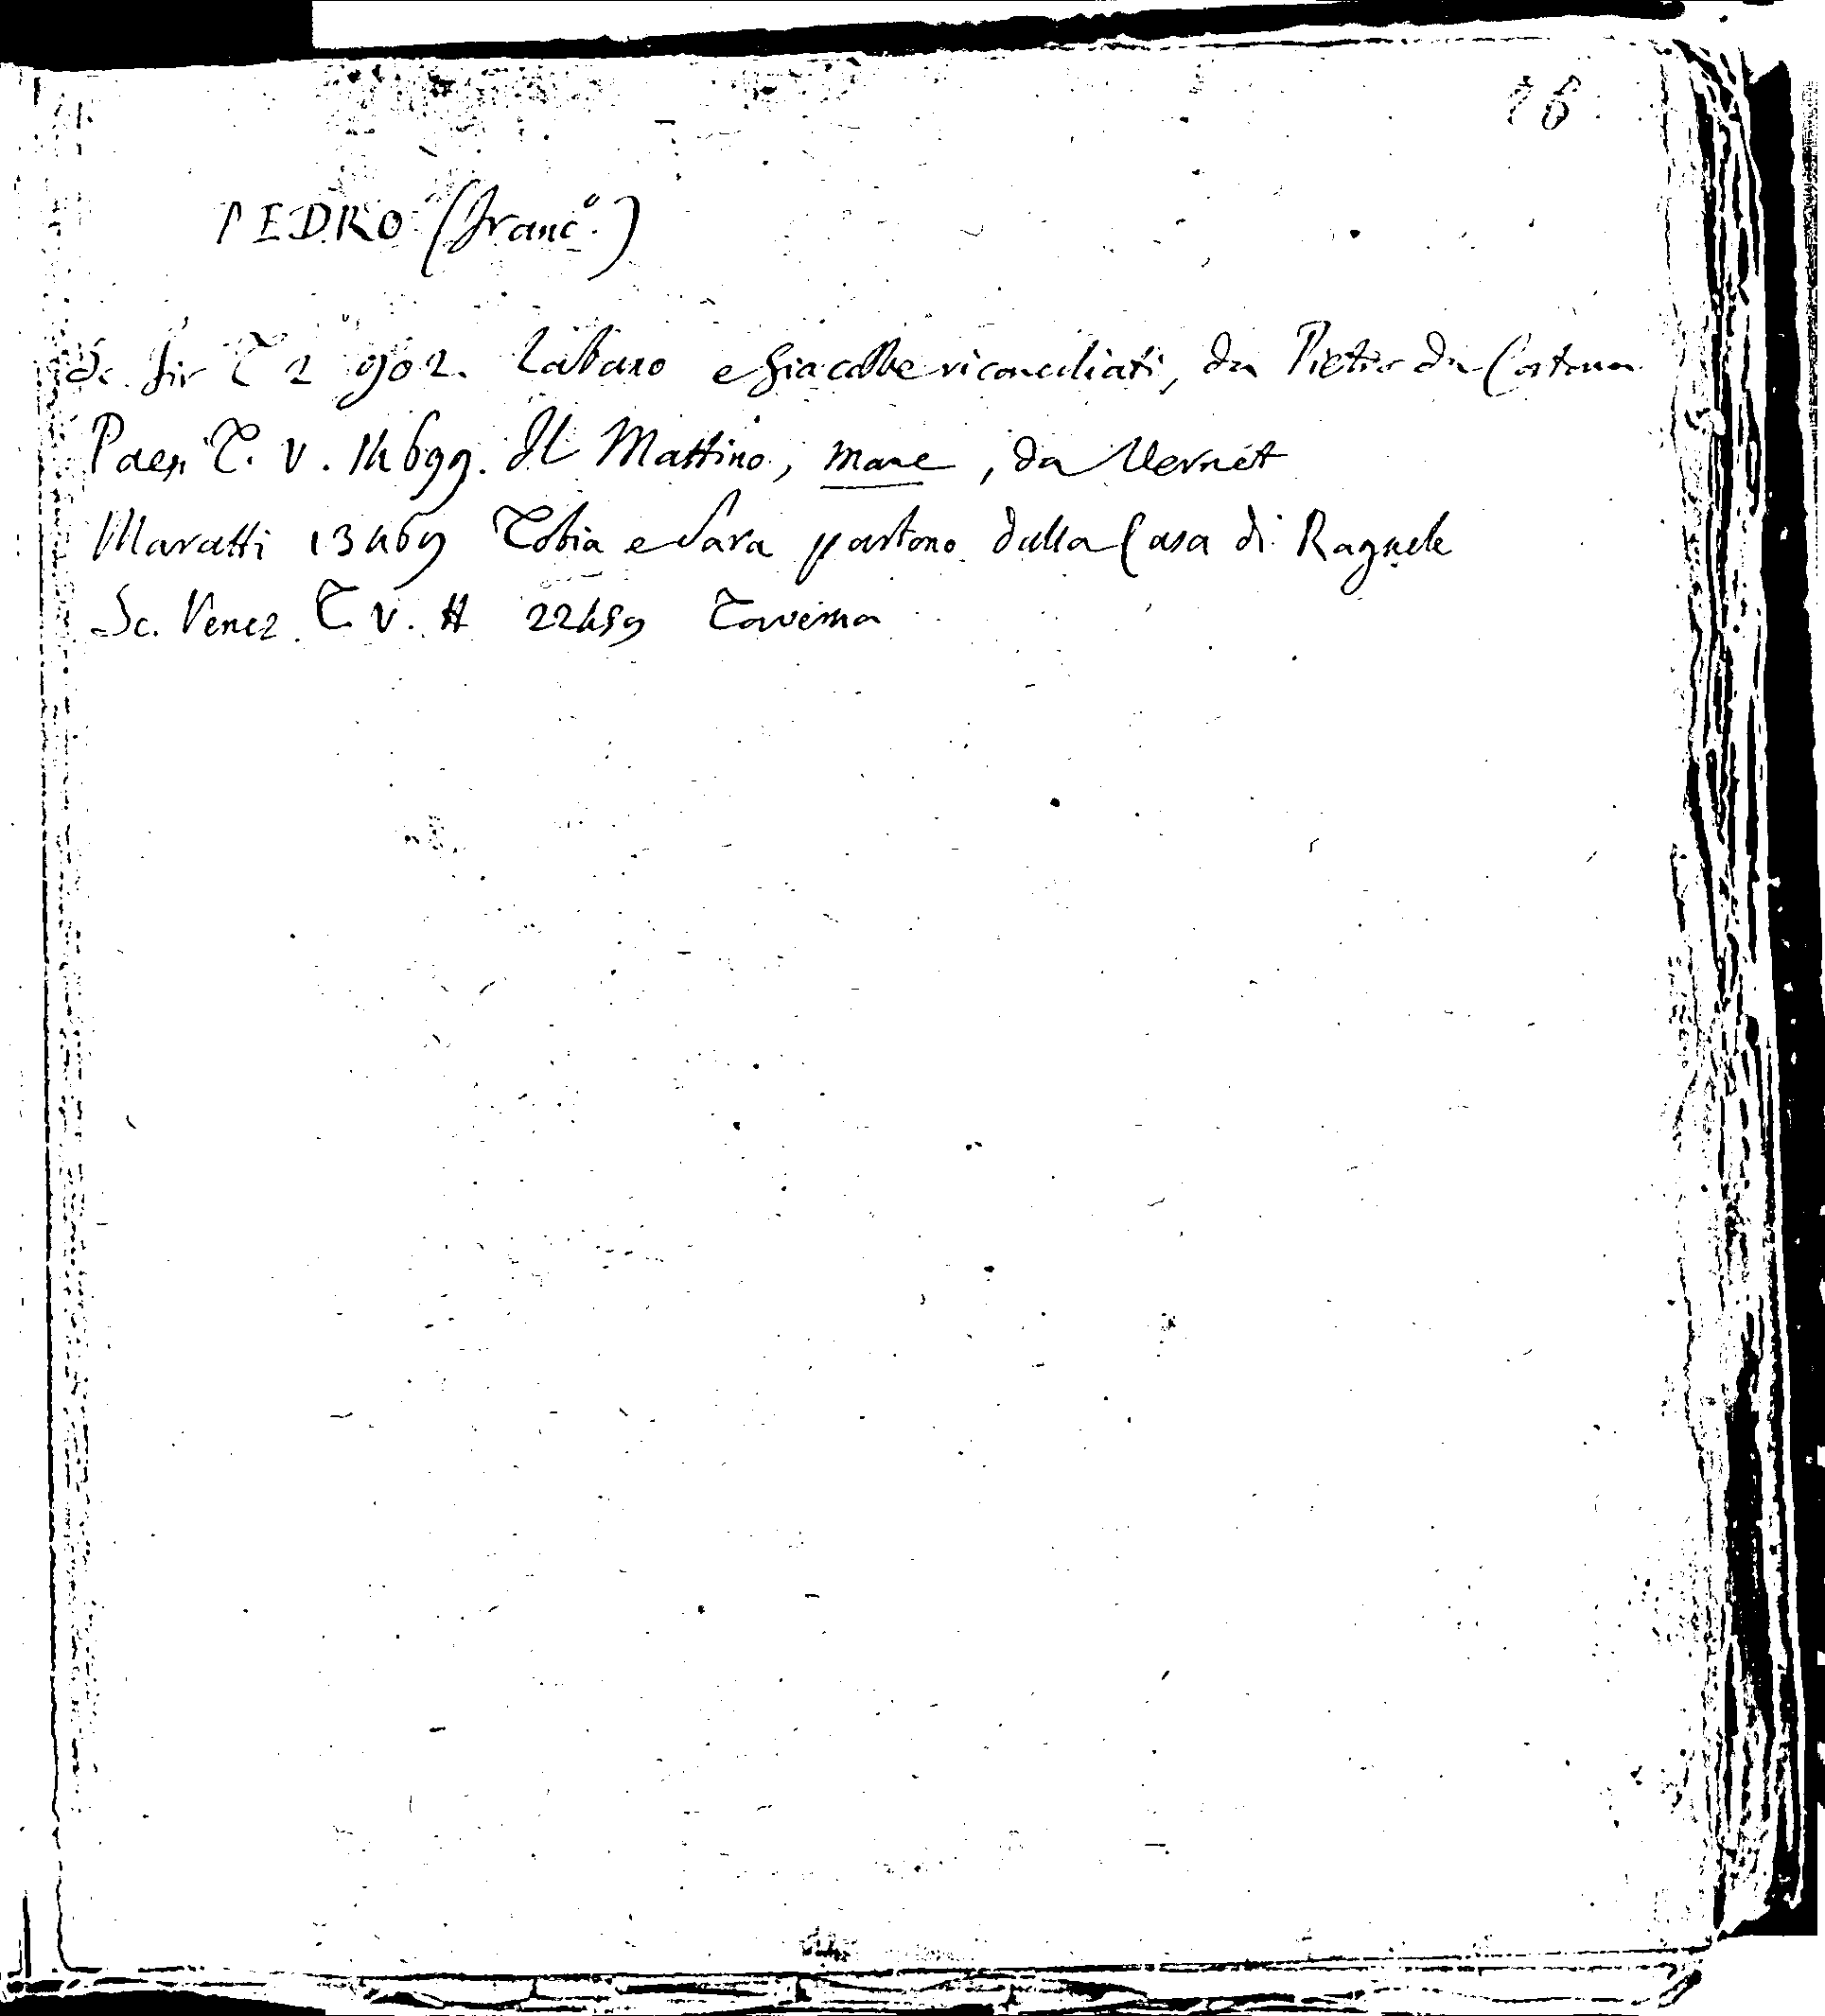 76
PEDRO (Franc.º)
Sc. Fir T 2 902. Labano e Giacobbe riconciliati, da Pietro da Cortona
Paes. T. V. 14699. Il Mattino, mare, da Vernet
Maratti 13469 Tobia e Sara partono dalla Casa di Raguele
Sc. Venez. T. V. H 22459 Taverna